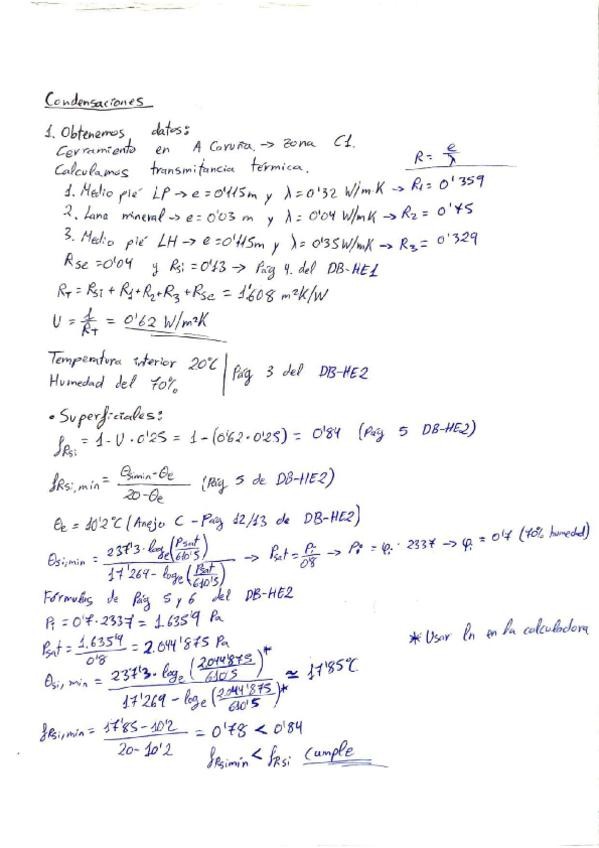 Condensaciones
1. Obtenemos datos:
Cerramiento en A Coruña. → zona C1.
Calculamos transmitancia térmica.
R = e/λ
1. Medio pié LP → e = 0'115m y λ = 0'32 W/m·K → R1 = 0'359
2. Lana mineral → e = 0'03 m y λ = 0'04 W/mK → R2 = 0'75
3. Medio pié LH → e = 0'115m y λ = 0'35W/mK → R3 = 0'329
Rse = 0'04 y Rsi = 0'13 → Pág 4. del DB-HE1
RT = Rsi + R1 + R2 + R3 + Rse = 1'608 m²K/W
U = 1/RT = 0'62 W/m²K
Temperatura interior 20°C | Pág 3 del DB-HE2
Humedad del 70%
• Superficiales:
fRsi = 1 - U · 0'25 = 1 - (0'62 · 0'25) = 0'84 (Pág 5 DB-HE2)
fRsi,min = θsimin - θe / 20 - θe (Pág 5 de DB-HE2)
θe = 10'2°C (Anejo C - Pág 12/13 de DB-HE2)
θsi,min = 237'3 · loge(Psat/610'5) / 17'269 - loge(Psat/610'5) → Psat = Pi/0'8 → Pi = φi · 2337 → φi = 0'7 (70% humedad)
Fórmulas de Pág 5 y 6 del DB-HE2
Pi = 0'7 · 2337 = 1.635'9 Pa
Psat = 1.635'9 / 0'8 = 2.044'875 Pa
* Usar ln en la calculadora
θsi,min = 237'3 · loge(2.044'875/610'5)* / 17'269 - loge(2.044'875/610'5)* ≃ 17'85°C
fRsi,min = 17'85 - 10'2 / 20 - 10'2 = 0'78 < 0'84
fRsimin < fRsi cumple